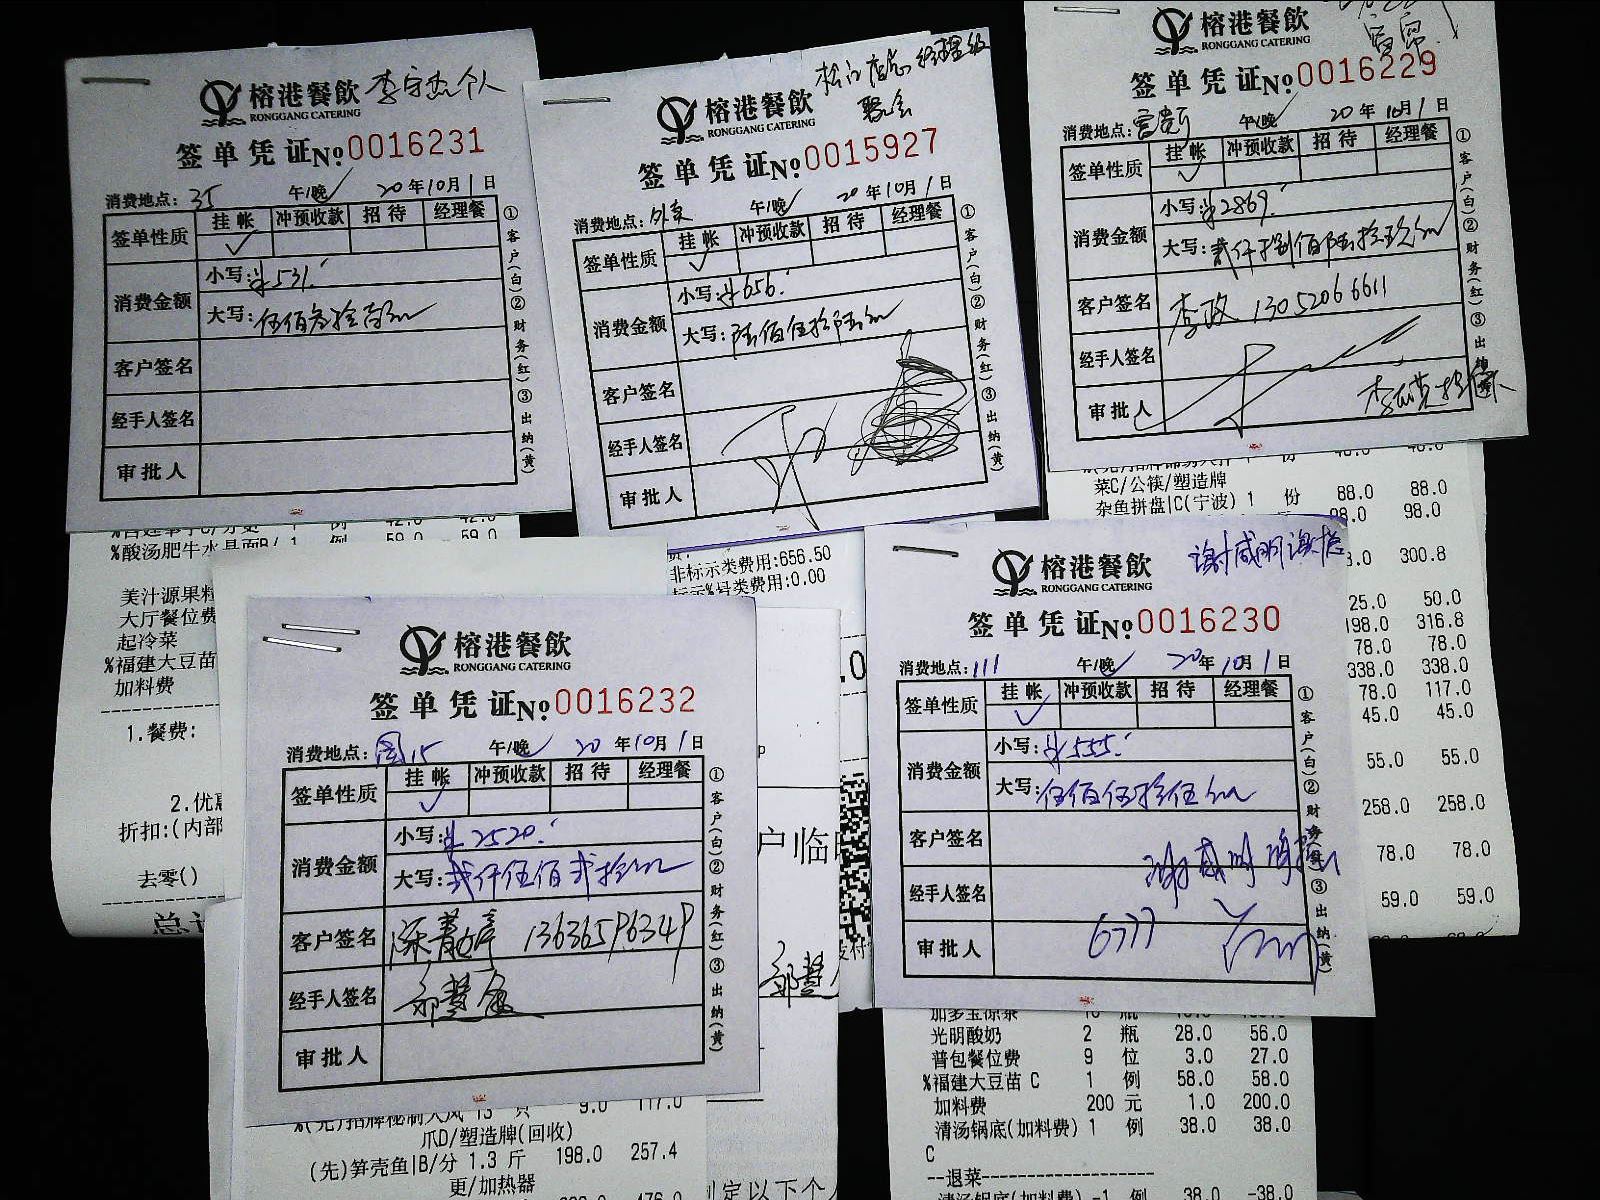 榕港餐飲 李宇杰个人
RONGGANG CATERING
签单凭证No.0016231
消费地点：35 午/晚 20年10月1日
签单性质 挂帐 冲预收款 招待 经理餐
消费金额 小写：¥531.
大写：伍佰叁拾壹元
客户签名
经手人签名
审批人
①客户(白)②财务(红)③出纳(黄)
榕港餐飲 经理级
聚会
RONGGANG CATERING
签单凭证No.0015927
消费地点：外卖 午/晚 20年10月1日
签单性质 挂帐 冲预收款 招待 经理餐
消费金额 小写：¥656.
大写：陆佰伍拾陆元
客户签名
经手人签名
审批人
①客户(白)②财务(红)③出纳(黄)
榕港餐飲
RONGGANG CATERING
签单凭证No.0016229
消费地点： 午/晚 20年10月1日
签单性质 挂帐 冲预收款 招待 经理餐
消费金额 小写：¥2869.
大写：贰仟捌佰陆拾玖元
客户签名 李政 13052066611
经手人签名
审批人
①客户(白)②财务(红)③出纳(黄)
%酸汤肥牛水晶面B/ 1 例 59.0 59.0
美汁源果粒
大厅餐位费
起冷菜
%福建大豆苗
加料费
1.餐费：
2.优惠
折扣：(内部
去零()
总计
非标示类费用：656.50
标示%号类费用：0.00
菜C/公筷/塑造牌
杂鱼拼盘|C(宁波) 1 份 88.0 88.0
98.0 98.0
300.8
25.0 50.0
198.0 316.8
78.0 78.0
338.0 338.0
78.0 117.0
45.0 45.0
55.0 55.0
258.0 258.0
78.0 78.0
59.0 59.0
榕港餐飲
RONGGANG CATERING
签单凭证No.0016232
消费地点：图15 午/晚 20年10月1日
签单性质 挂帐 冲预收款 招待 经理餐
消费金额 小写：¥2520.
大写：贰仟伍佰贰拾元
客户签名 13636596349
经手人签名
审批人
①客户(白)②财务(红)③出纳(黄)
户临
支付
榕港餐飲
RONGGANG CATERING
签单凭证No.0016230
消费地点：111 午/晚 20年10月1日
签单性质 挂帐 冲预收款 招待 经理餐
消费金额 小写：¥555.
大写：伍佰伍拾伍元
客户签名
经手人签名
审批人 6777
①客户(白)②财务(红)③出纳(黄)
爪D/塑造牌(回收)
(先)笋壳鱼|B/分 1.3 斤 198.0 257.4
更/加热器
定以下个人
加多宝凉茶 10 瓶
光明酸奶 2 瓶 28.0 56.0
普包餐位费 9 位 3.0 27.0
%福建大豆苗 C 1 例 58.0 58.0
加料费 200 元 1.0 200.0
清汤锅底(加料费) 1 例 38.0 38.0
C
--退菜--------------------
清汤锅底(加料费) -1 例 38.0 -38.0